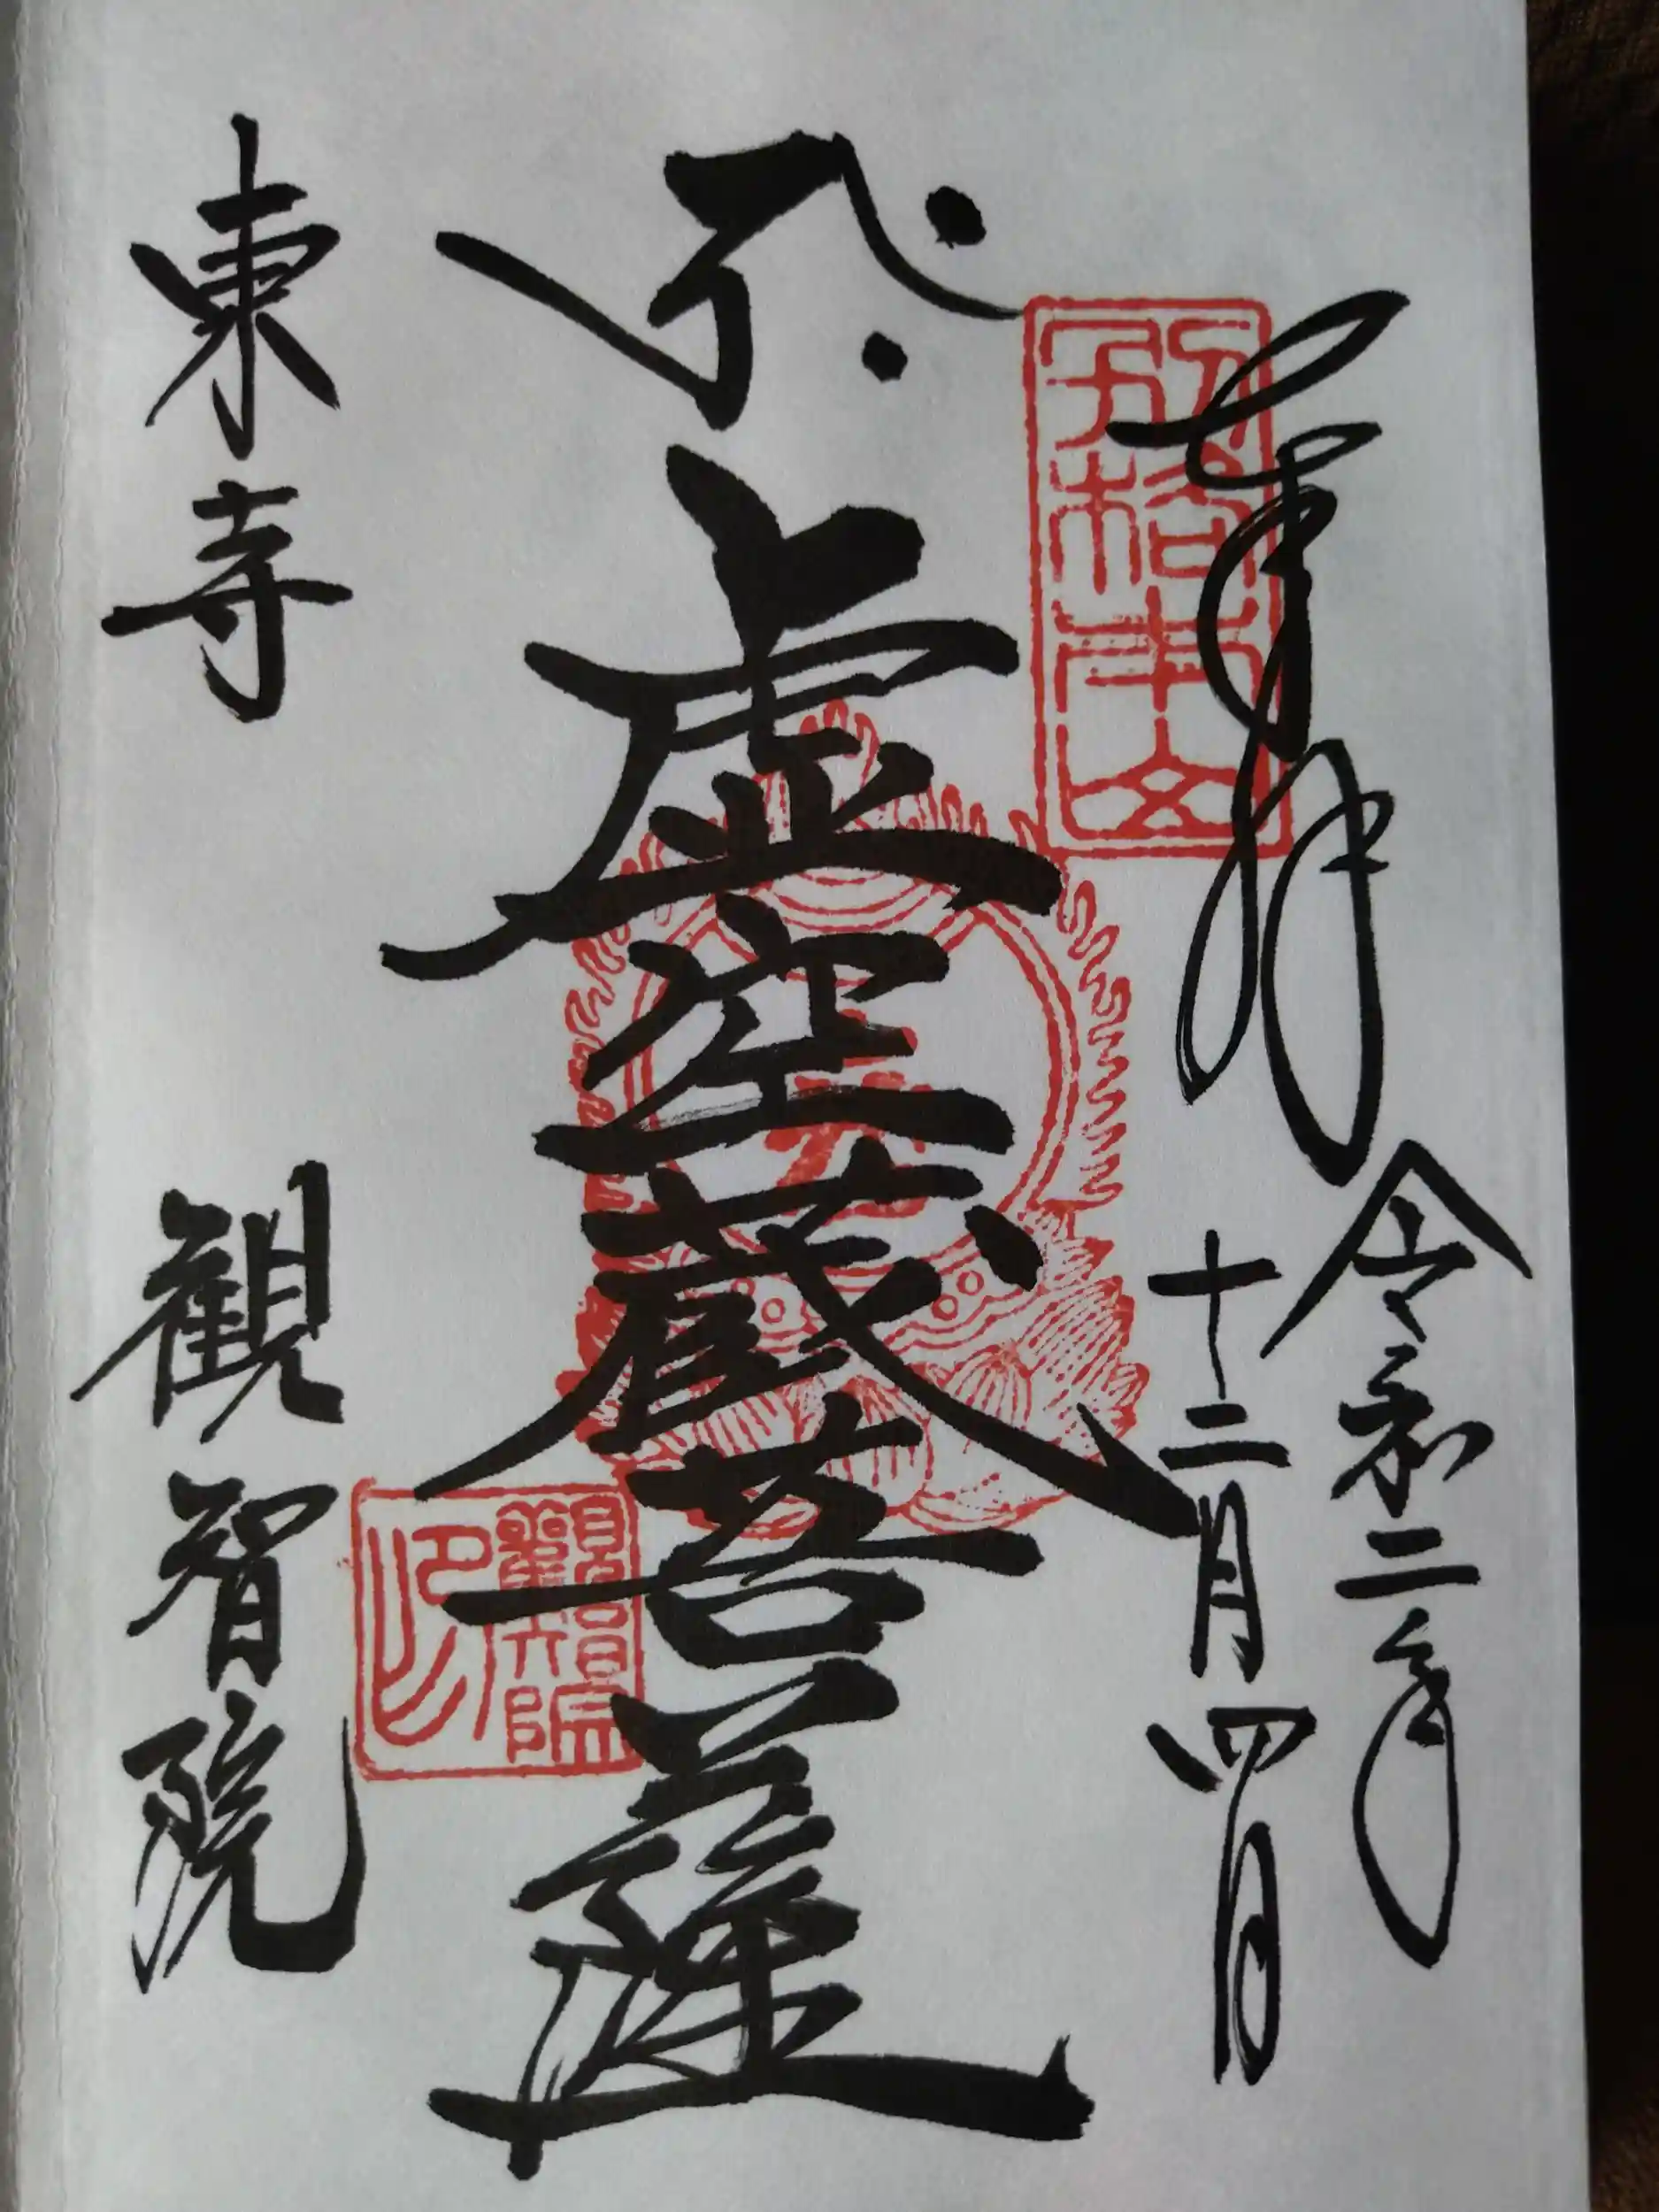 奉拝
令和二年
十二月四日
別格本山
त्राः
虚空蔵菩薩
東寺
観智院
觀智院印